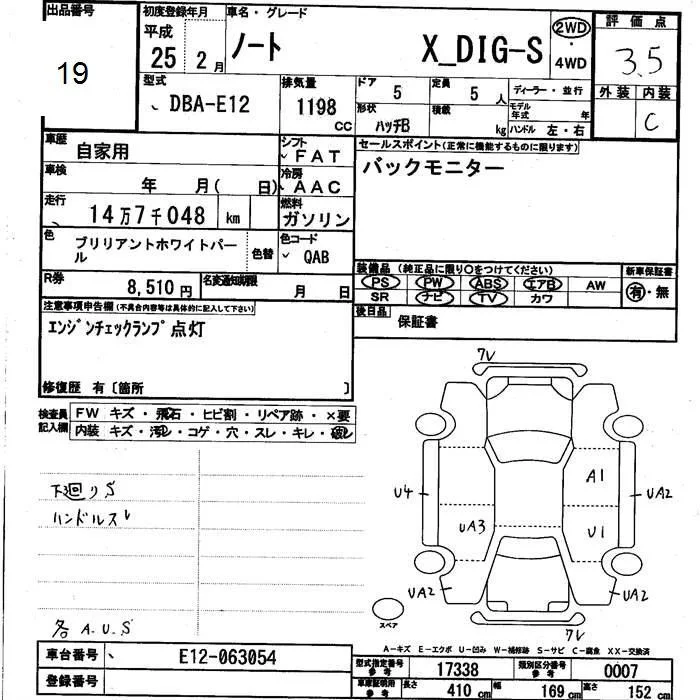 出品番号
19
初度登録年月
平成
25 2月
車名・グレード
ノート X_DIG-S
2WD
・
4WD
評価点
3.5
外装 内装
C
型式
DBA-E12
排気量
1198
CC
ドア 5
定員 5人
形状
ハッチB
積載 kg
ディーラー・並行
モデル年式 年
ハンドル 左・右
車歴
自家用
シフト
FAT
車検
年 月( 日)
冷房
AAC
走行
14万7千048 km
燃料
ガソリン
色
ブリリアントホワイトパール
色替
色コード
QAB
R券
8,510円
名変通知期限
月 日
セールスポイント(正常に機能するものに限ります)
バックモニター
装備品 (純正品に限り○をつけてください)
PS PW ABS エアB AW
SR ナビ TV カワ
新車保証書
有・無
後日品
保証書
注意事項申告欄(不具合内容等は具体的に記入して下さい)
エンジンチェックランプ点灯
修復歴 有〔箇所 〕
検査員記入欄
FW キズ・飛石・ヒビ割・リペア跡・×要
内装 キズ・汚レ・コゲ・穴・スレ・キレ・破レ
下廻りS
ハンドルス
各A.U.S
7V
A1
U4
UA2
UA3
U1
UA2
UA2
7V
スペア
A-キズ E-エクボ U-凹み W-補修跡 S-サビ C-腐食 XX-交換済
車台番号
E12-063054
登録番号
型式指定番号
参考
17338
類別区分番号
参考
0007
車庫証明用
参考
長さ 410 cm
幅 169 cm
高さ 152 cm